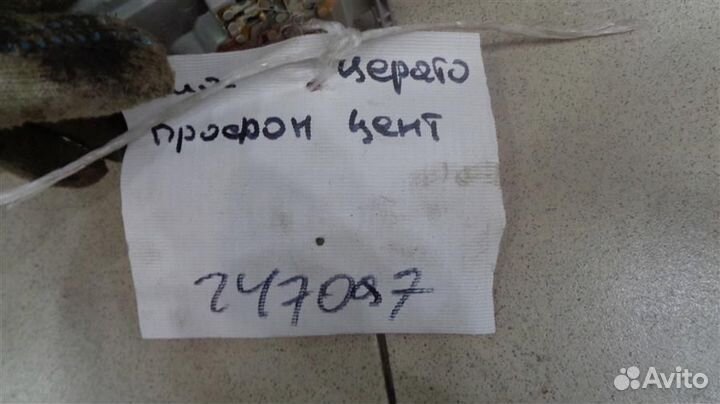 церато
просрон цент
247097
Avito